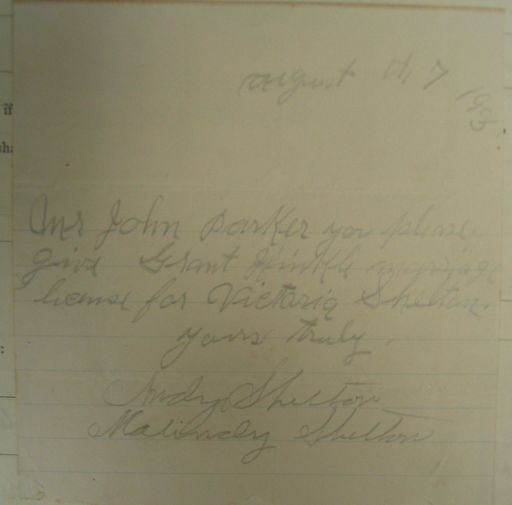 august th, 7
if
sha
Mr John Parker you please
give Grant Hinkle marriage
license for Victoria Shelton.
yours truly.
Andy Shelton
Malindy Shelton